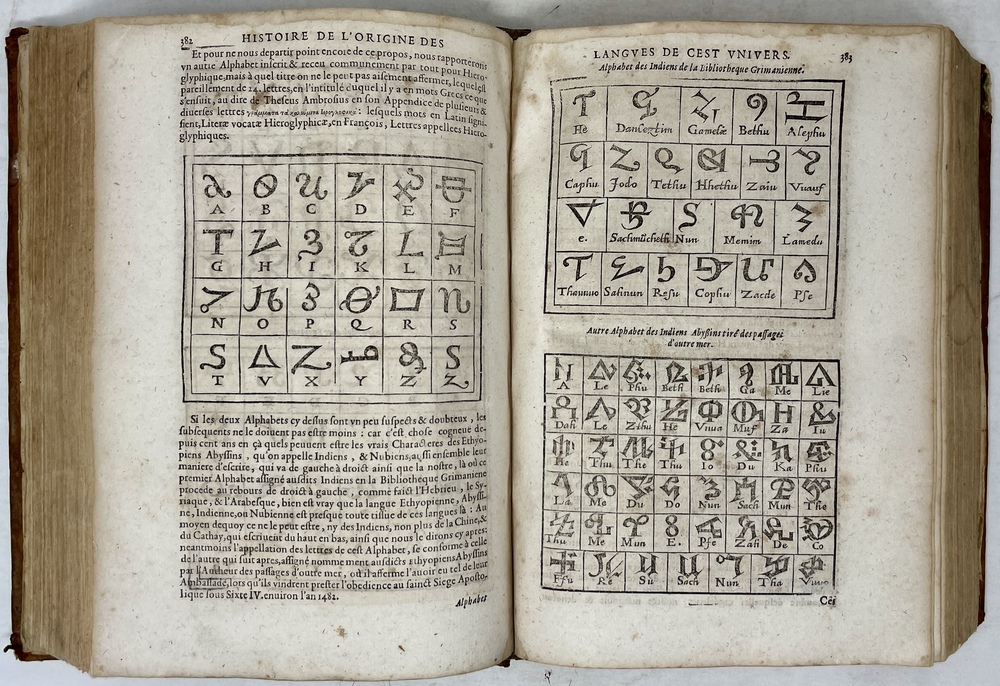 382
HISTOIRE DE L'ORIGINE DES
Et pour ne nous departir point encore de ce propos, nous rapporterons
vn autre Alphabet inscrit & receu communement par tout pour Hiero-
glyphique, mais à quel titre on ne le peut pas aisement affermer, lequel est
pareillement de 24. lettres, en l'intitulé duquel il y a en mots Grecs ce que
s'ensuit, au dire de Theseus Ambrosius en son Appendice de plusieurs &
diuerses lettres : lesquels mots en Latin signi-
fient, Literæ vocatæ Hieroglyphicæ, en François, Lettres appellees Hiero-
glyphiques.
A B C D E F
G H I K L M
N O P Q R S
T V X Y Z Z
Si les deux Alphabets cy dessus sont vn peu suspects & doubteux, les
subsequents ne le doiuent pas estre moins : car c'est chose cogneuë de-
puis cent ans en çà quels peuuent estre les vrais Characteres des Ethyo-
piens Abyssins, qu'on appelle Indiens, & Nubiens, aussi ensemble leur
maniere d'escrire, qui va de gauche à droict ainsi que la nostre, là où ce
premier Alphabet assigné ausdits Indiens en la Bibliotheque Grimaniene
procede au rebours de droict à gauche, comme faict l'Hebrieu, le Sy-
riaque, & l'Arabesque, bien est vray que la langue Ethyopienne, Abyssi-
ne, Indienne, on Nubienne est presque toute tissue de ces langues là : Au
moyen dequoy ce ne peut estre, ny des Indiens, non plus de la Chine, &
du Cathay, qui escriuent du haut en bas, ainsi que nous le dirons cy apres:
neantmoins l'appellation des lettres de cest Alphabet, se conforme à celle
de l'autre qui suit apres, assigné nommement ausdicts Ethyopiens Abyssins
par l'Autheur des passages d'outre mer, où il afferme l'auoir eu tel de leur
Ambassade, lors qu'ils vindrent prester l'obedience au sainct Siege Aposto-
lique sous Sixte IV. enuiron l'an 1482.
Alphabet
LANGVES DE CEST VNIVERS.
383
Alphabet des Indiens de la Bibliotheque Grimanienne.
He Danceztim Gamelæ Bethu Alephu
Caphu Jodo Tethu Hhethu Zaiu Vuauf
e. Sachimlichethi Nun Memim Lamedu
Thauuuo Sahnun Resu Cophu Zaede Pse
Autre Alphabet des Indiens Abyßins tiré des passages
d'outre mer.
A Le Phu Beth Beth Ga Me Lie
Dah Le Zthu He Vuua Muf Za Iu
He Thu The Thu Io Du Ka Psiu
La Me Du Do Nun Sach Mun The
Thu Me Mun E. Pse Zah De Co
Ffu Re Su Sach Nun Tha Vuuo
Cei